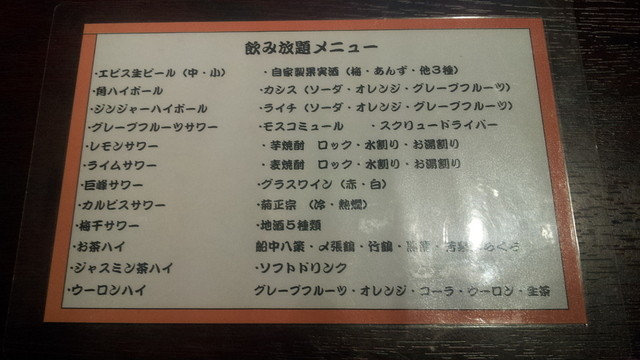 飲み放題メニュー
・エビス生ビール（中・小）
・角ハイボール
・ジンジャーハイボール
・グレープフルーツサワー
・レモンサワー
・ライムサワー
・巨峰サワー
・カルピスサワー
・梅干サワー
・お茶ハイ
・ジャスミン茶ハイ
・ウーロンハイ
・自家製果実酒（梅・あんず・他３種）
・カシス（ソーダ・オレンジ・グレープフルーツ）
・ライチ（ソーダ・オレンジ・グレープフルーツ）
・モスコミュール ・スクリュードライバー
・芋焼酎 ロック・水割り・お湯割り
・麦焼酎 ロック・水割り・お湯割り
・グラスワイン（赤・白）
・菊正宗（冷・熱燗）
・地酒５種類
船中八策・〆張鶴・竹鶴・
・ソフトドリンク
グレープフルーツ・オレンジ・コーラ・ウーロン・生茶